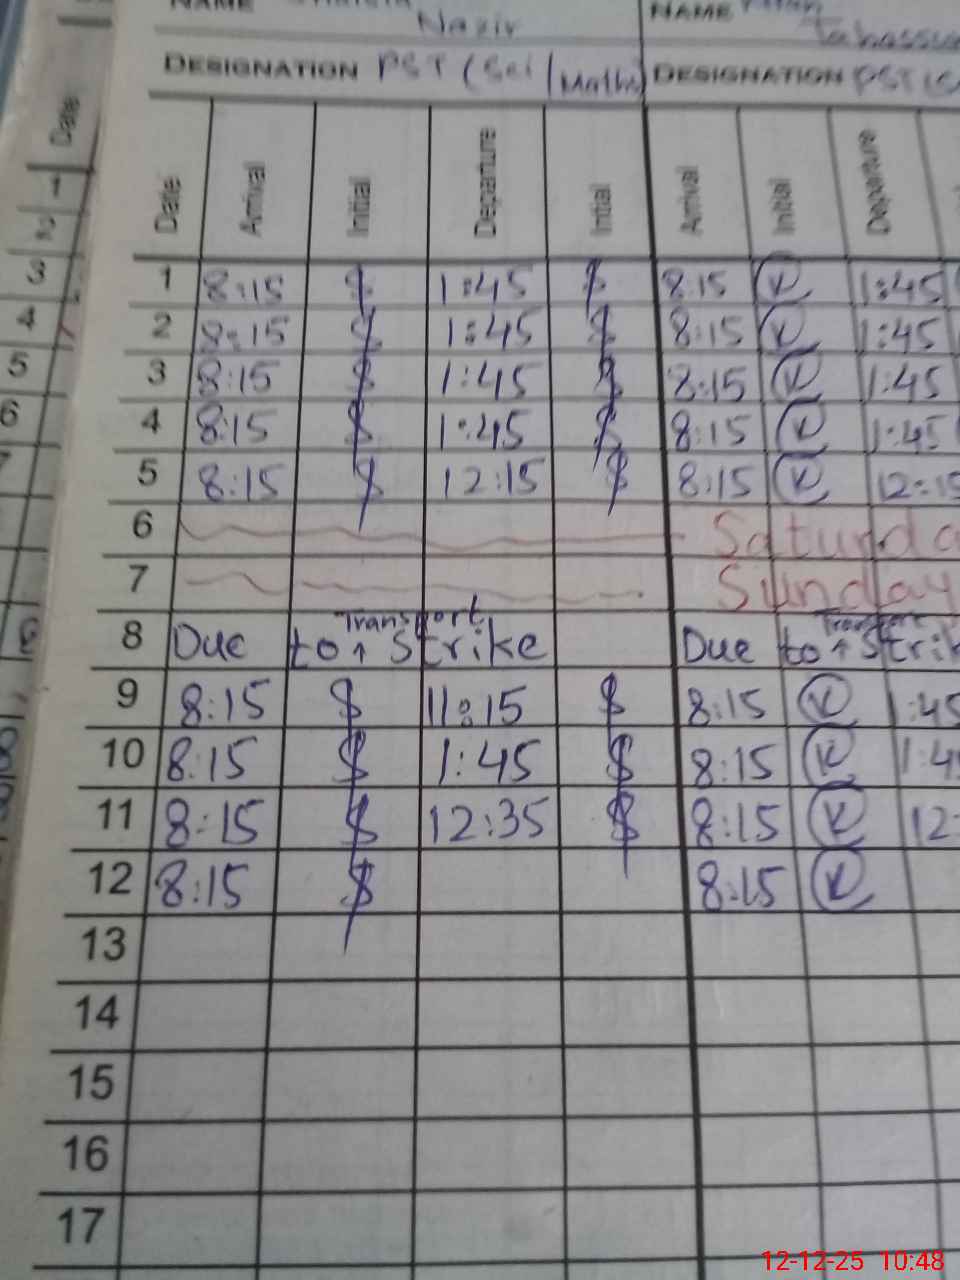 NAME Nazir NAME
DESIGNATION PST (Sci/Maths) DESIGNATION PST
Date Date Arrival Initial Departure Initial Arrival Initial Departure
1 8:15 1:45 8:15 K 1:45
2 8:15 1:45 8:15 K 1:45
3 8:15 1:45 8:15 K 1:45
4 8:15 1:45 8:15 K 1:45
5 8:15 12:15 8:15 K 12:15
6 Saturda
7 Sunday
8 Due to Transport Strike Due to Transport Strik
9 8:15 11:15 8:15 K 1:45
10 8:15 1:45 8:15 K 1:45
11 8:15 12:35 8:15 K 12:
12 8:15 8:15 K
13
14
15
16
17
1
2
3
4
5
6
7
8
12-12-25 10:48